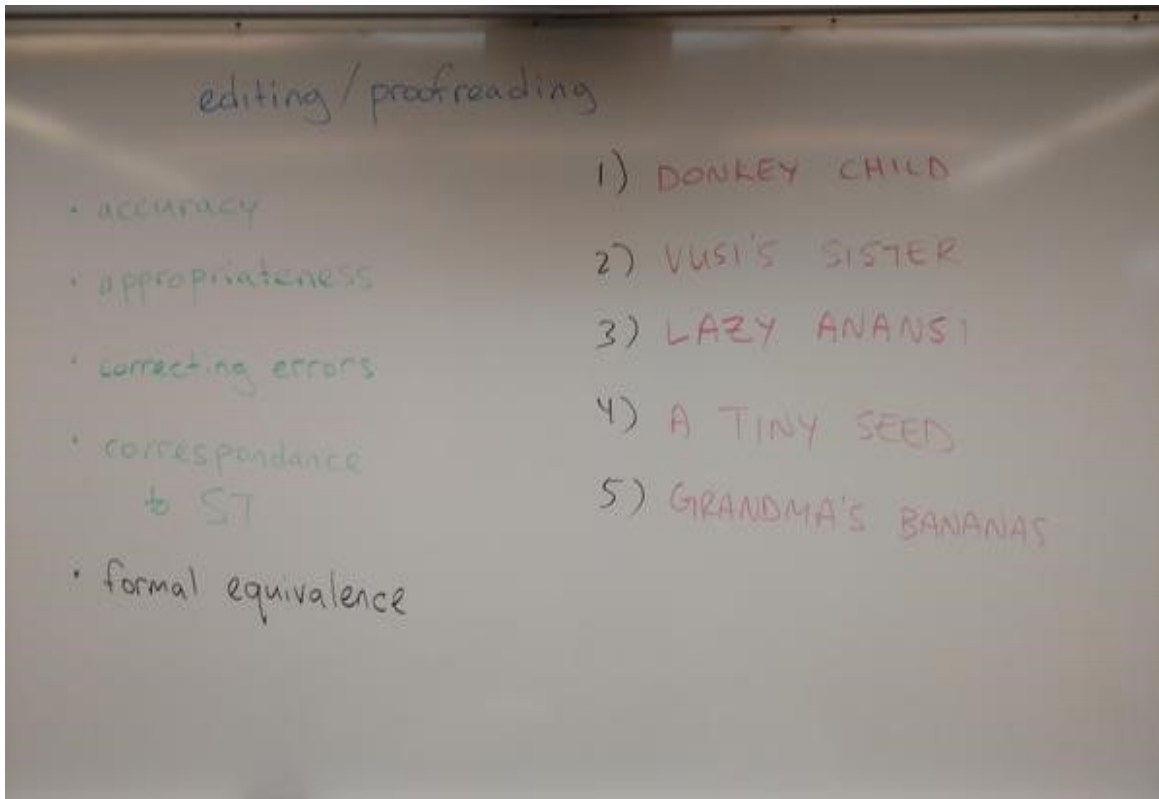 editing / proofreading
• accuracy
• appropriateness
• correcting errors
• correspondance
to ST
• formal equivalence
1) DONKEY CHILD
2) VUSI'S SISTER
3) LAZY ANANSI
4) A TINY SEED
5) GRANDMA'S BANANAS